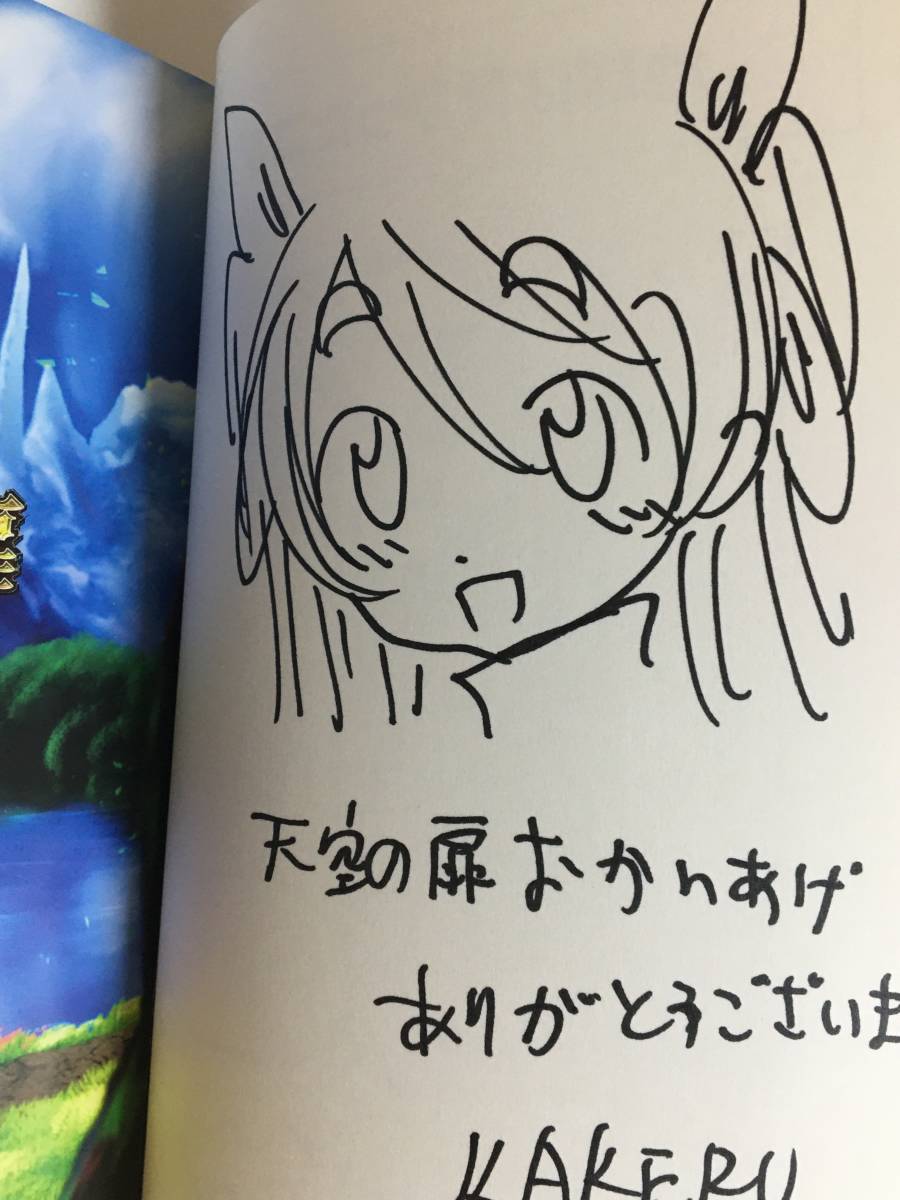 天空の扉おかいあげ
ありがとうございま
KAKERU